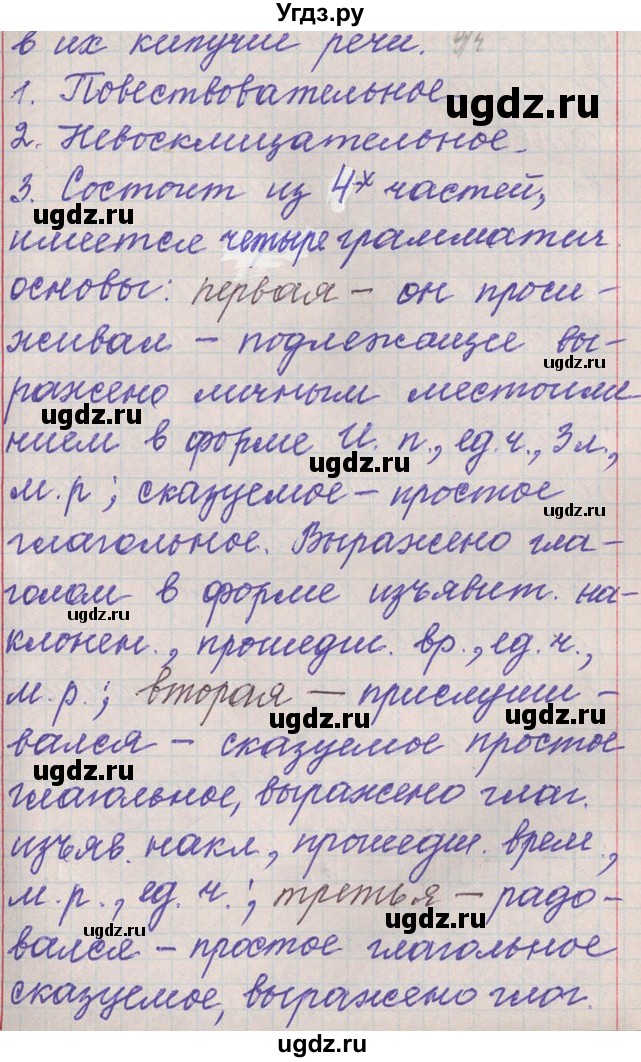 УГДЗ.РУ
в их кипучие речи.
1. Повествовательное
ugdz.ru
2. Невосклицательное.
3. Состоит из 4х частей,
ugdz.ru
имеется четыре грамматич.
основы: первая – он проси-
ugdz.ru
живал – подлежащее вы-
ражено личным местоиме
ugdz.ru
нием в форме И. п., ед. ч., 3 л.,
ugdz.ru
м. р; сказуемое – простое
ugdz.ru
глагольное. Выражено гла-
голом в форме изъявит. на-
ugdz.ru
клонен., прошедш. вр., ед. ч.,
м. р.; вторая – прислуши-
ugdz.ru ugdz.ru
вался – сказуемое простое
ugdz.ru
глагольное, выражено глаг.
изъяв. накл, прошедш. врем.,
ugdz.ru
м. р., ед. ч.; третья – радо-
ugdz.ru
вался – простое глагольное
сказуемое, выражено глаг.
ugdz.ru
ugdz.ru